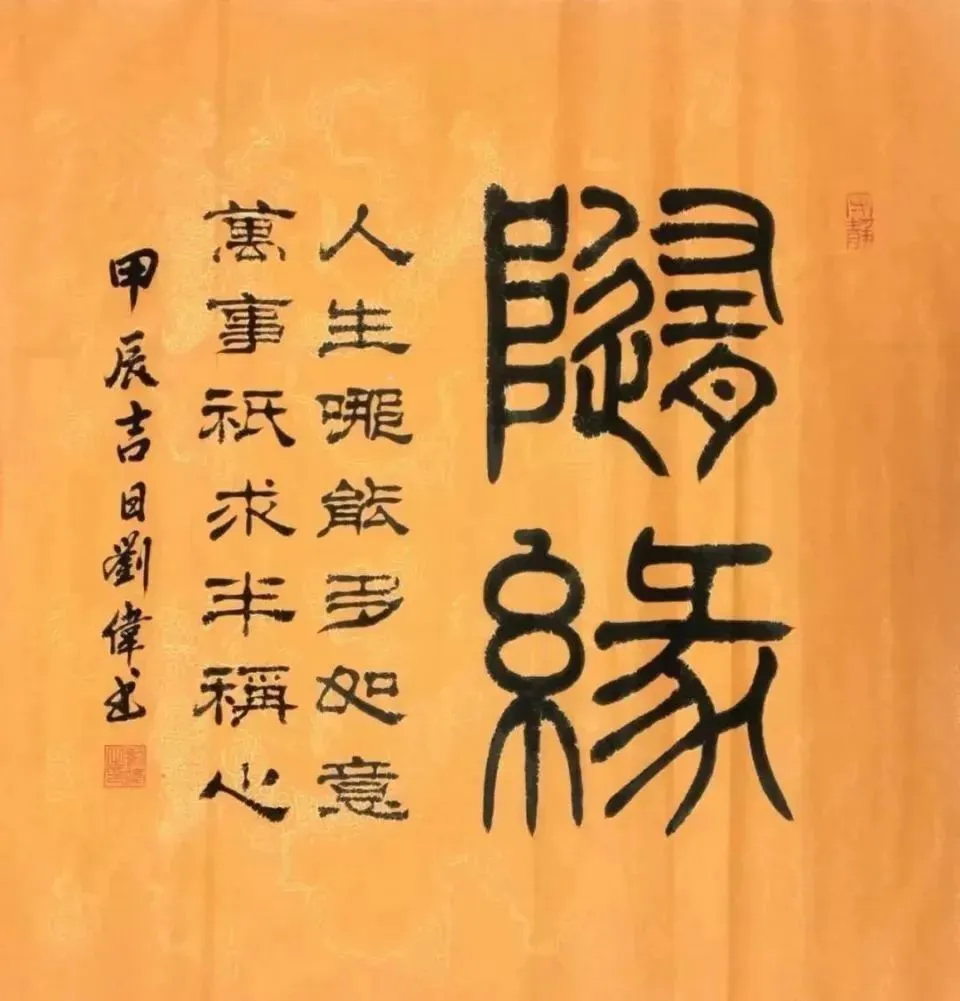 隨緣
人生哪能多如意
萬事祇求半稱心
甲辰吉日劉偉书